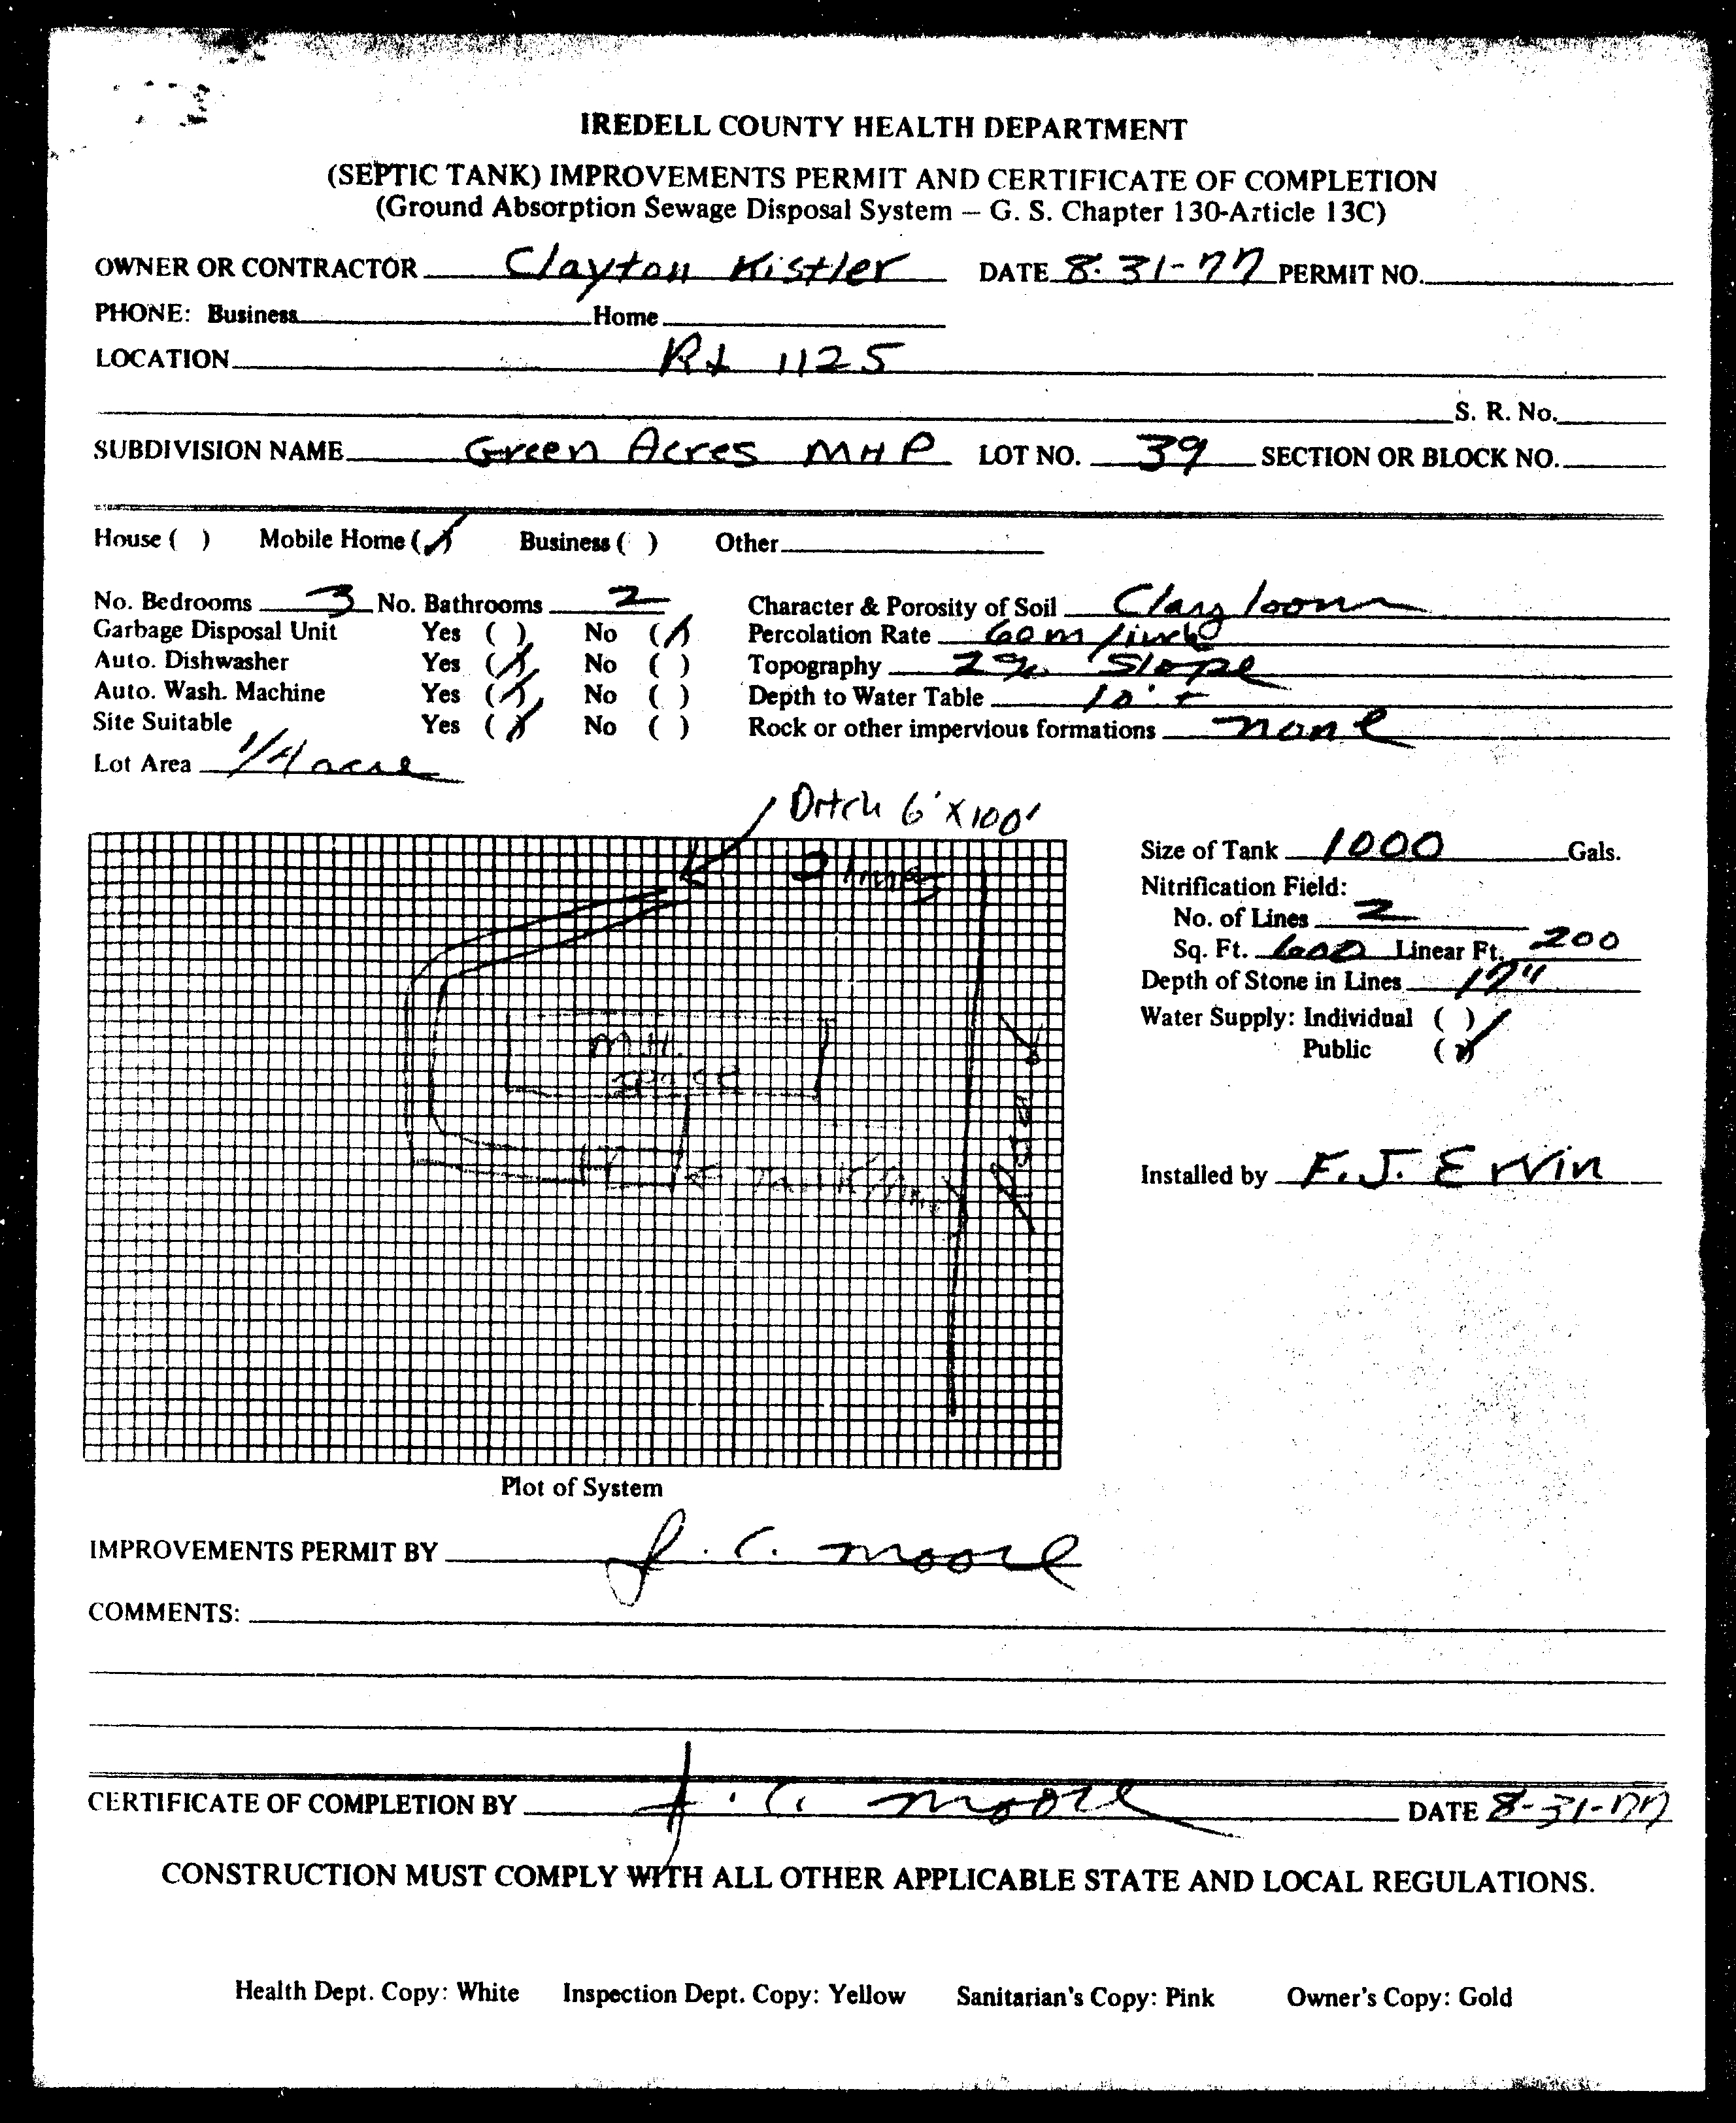 IREDELL COUNTY HEALTH DEPARTMENT
(SEPTIC TANK) IMPROVEMENTS PERMIT AND CERTIFICATE OF COMPLETION
(Ground Absorption Sewage Disposal System – G. S. Chapter 130-Article 13C)
OWNER OR CONTRACTOR Clayton Kistler DATE 8-31-77 PERMIT NO.
PHONE: Business Home
LOCATION Rt 1125
S. R. No.
SUBDIVISION NAME Green Acres MHP LOT NO. 39 SECTION OR BLOCK NO.
House ( ) Mobile Home (✓) Business ( ) Other
No. Bedrooms 3 No. Bathrooms 2 Character & Porosity of Soil Clay loom
Garbage Disposal Unit Yes ( ) No (✓) Percolation Rate 60 m/inch
Auto. Dishwasher Yes (✓) No ( ) Topography 2% Slope
Auto. Wash. Machine Yes (✓) No ( ) Depth to Water Table 10'+
Site Suitable Yes (✓) No ( ) Rock or other impervious formations none
Lot Area 1/4 acre
Ditch 6' X 100'
2 lines
M.H.
space
Tank
Size of Tank 1000 Gals.
Nitrification Field:
No. of Lines 2
Sq. Ft. 600 Linear Ft. 200
Depth of Stone in Lines 17"
Water Supply: Individual ( )
Public (✓)
Installed by F. J. Ervin
Plot of System
IMPROVEMENTS PERMIT BY J. C. Moore
COMMENTS:
CERTIFICATE OF COMPLETION BY J. C. Moore DATE 8-31-77
CONSTRUCTION MUST COMPLY WITH ALL OTHER APPLICABLE STATE AND LOCAL REGULATIONS.
Health Dept. Copy: White Inspection Dept. Copy: Yellow Sanitarian's Copy: Pink Owner's Copy: Gold